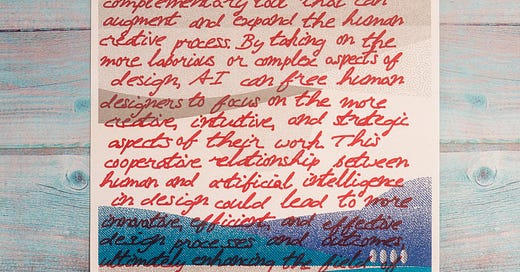 complementary tool that can
augment and expand the human
creative process. By taking on the
more laborious or complex aspects of
design, A.I can free human
designers to focus on the more
creative, intuitive, and strategic
aspects of their work. This
cooperative relationship between
human and artificial intelligence
in design could lead to more
innovative, efficient, and effective
design processes and outcomes,
ultimately enhancing the field of